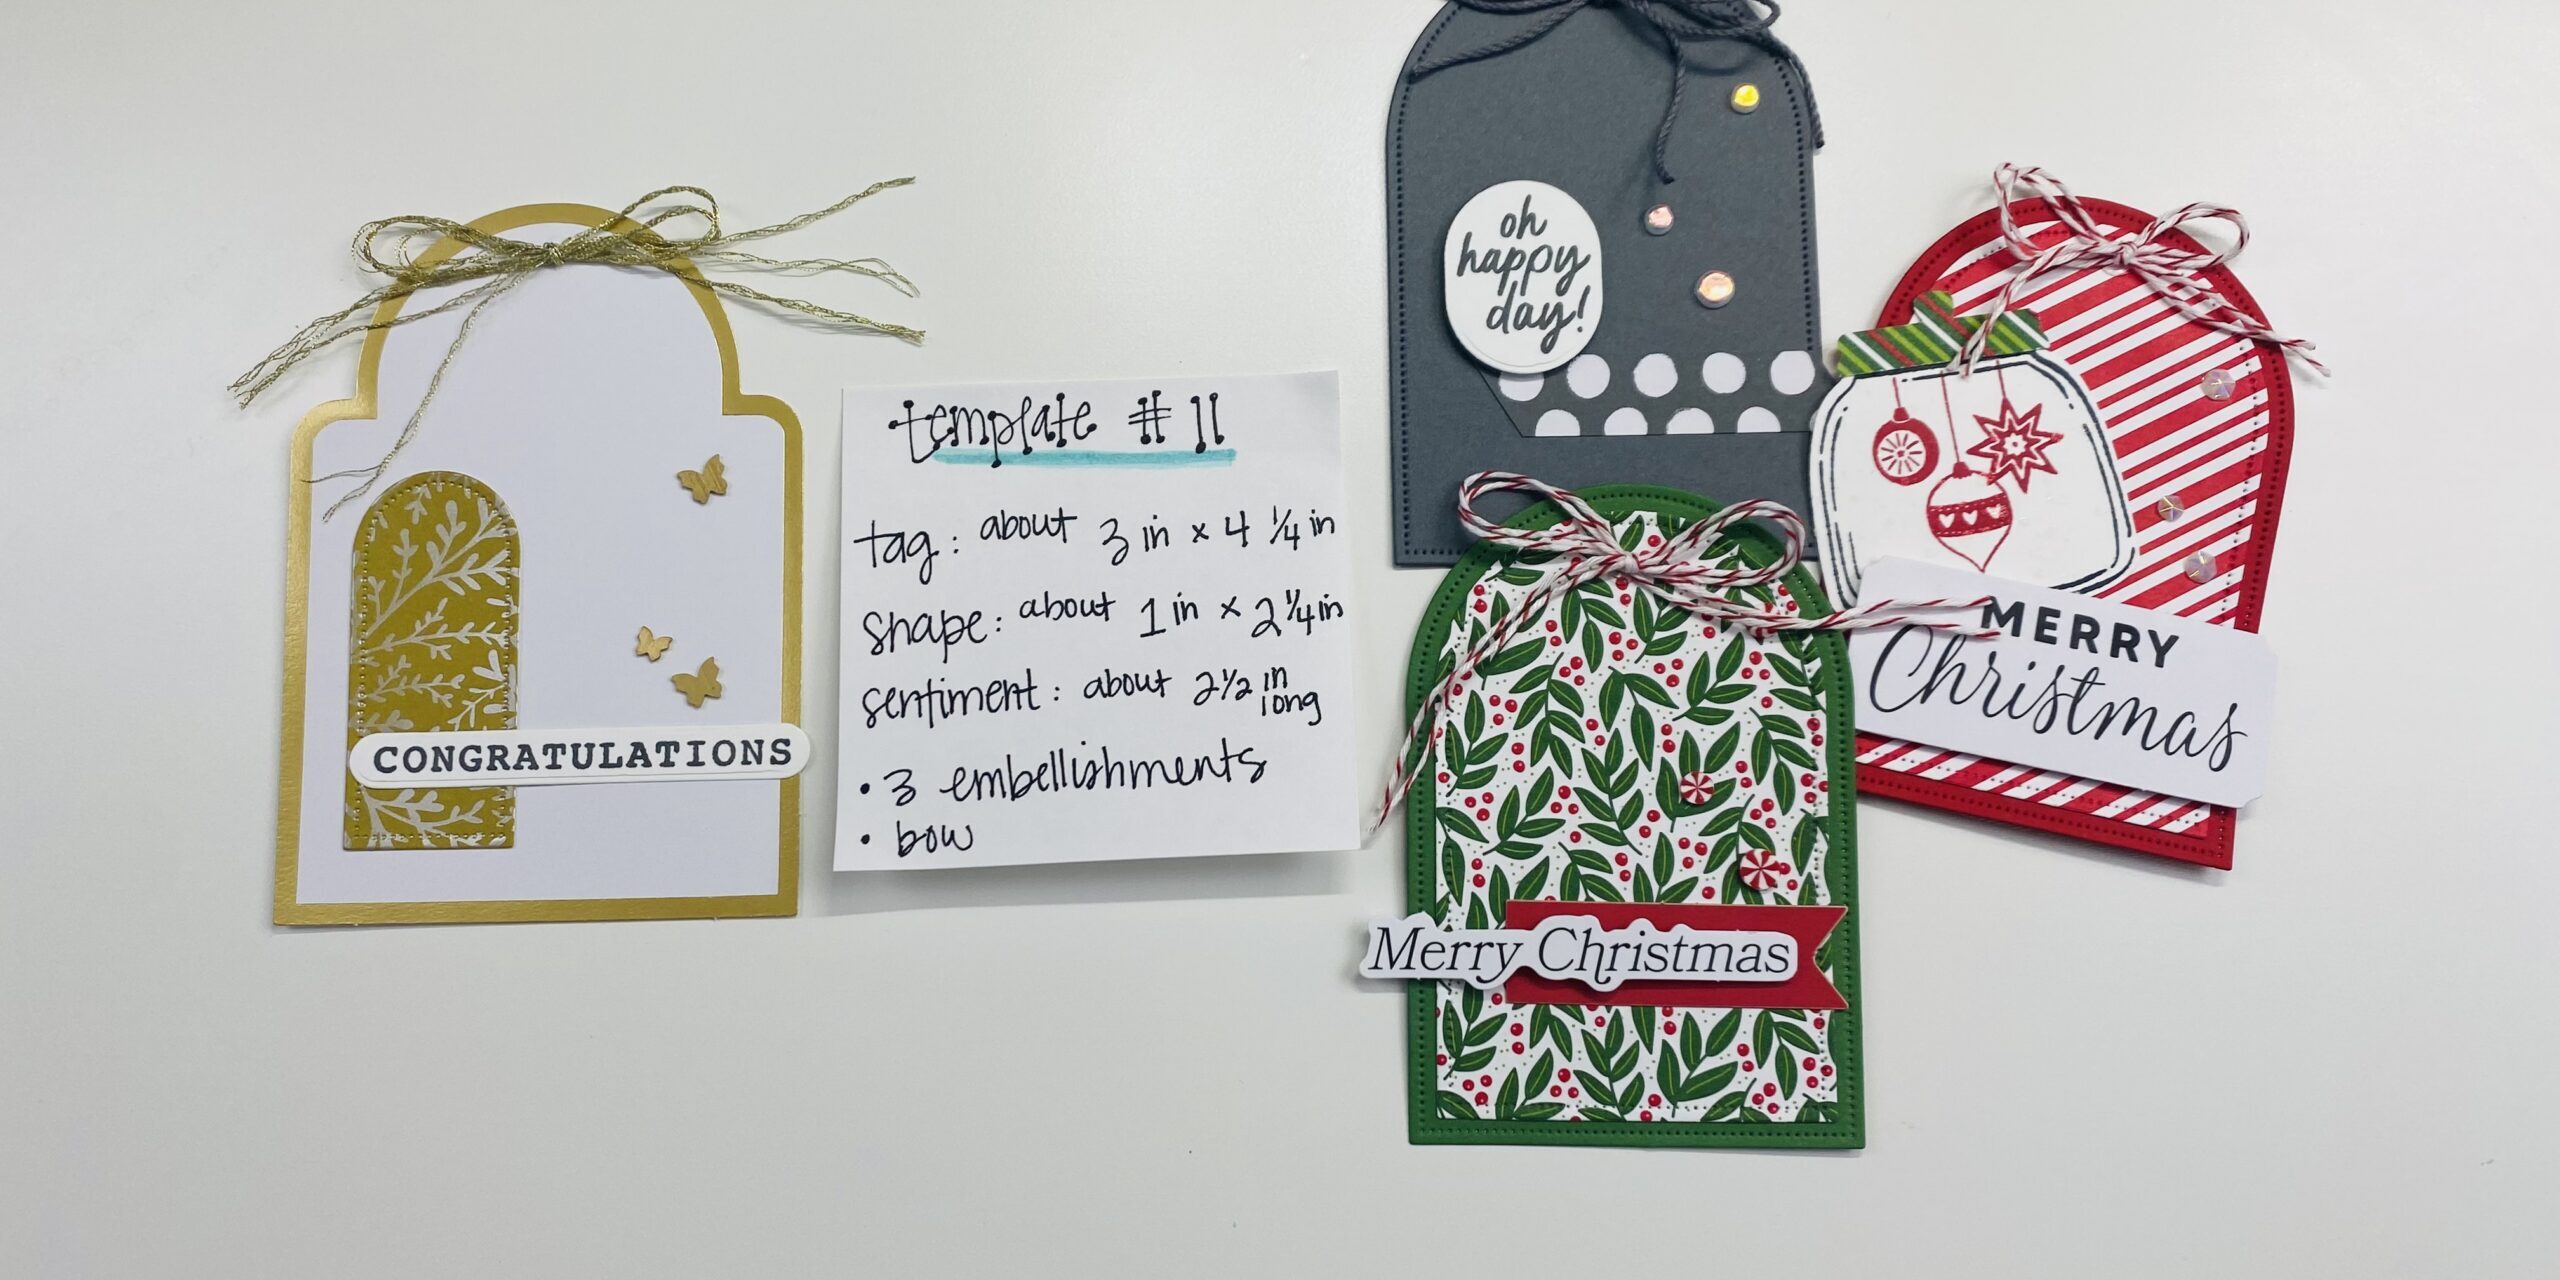 CONGRATULATIONS
template # 11
tag: about 3 in x 4 1/4 in
shape: about 1 in x 2 1/4 in
sentiment: about 2 1/2 in
long
• 3 embellishments
• bow
oh
happy
day!
MERRY
Christmas
Merry Christmas